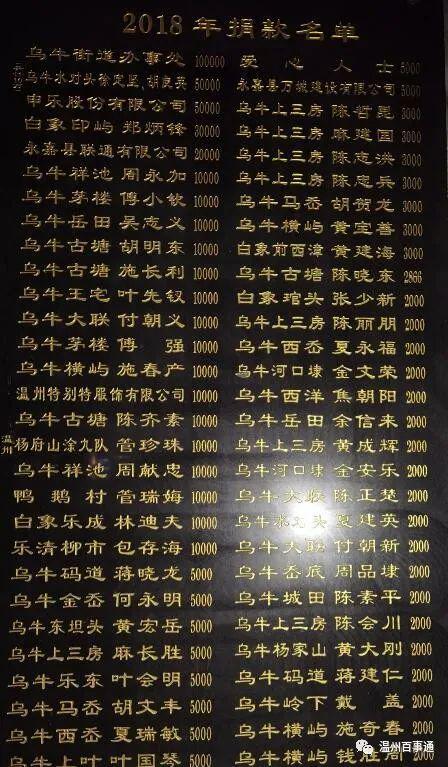 2018年捐款名单
乌牛街道办事处 100000
乌牛水对头徐定星、胡良英 50000
申乐股份有限公司 50000
白象印屿 郑炳锋 30000
永嘉县联通有限公司 20000
乌牛祥池 周永加 10000
乌牛茅楼 傅小钦 10000
乌牛岳田 吴志义 10000
乌牛古塘 胡明东 10000
乌牛古塘 施长利 10000
乌牛王宅 叶先钗 10000
乌牛大联 付朝义 10000
乌牛茅楼 傅 强 10000
乌牛横屿 施春产 10000
温州特别特服饰有限公司 10000
乌牛古塘 陈齐素 10000
温州
杨府山涂九队 菅珍珠 10000
乌牛祥池 周献忠 10000
鸭鹅村 菅瑞姆 10000
白象乐成 林迪夫 10000
乐清柳市 包存海 10000
乌牛码道 蒋晓龙 5000
乌牛金岙 何永明 5000
乌牛东坦头 黄宏岳 5000
乌牛上三房 麻长胜 5000
乌牛乐东 叶会明 5000
乌牛马岙 胡文丰 5000
乌牛西岙 夏瑞敏 5000
乌牛上叶 叶国琴 5000
爱心人士 5000
永嘉县万城建设有限公司 3000
乌牛上三房 陈哲昆 3000
乌牛上三房 麻建国 3000
乌牛上三房 陈志洪 3000
乌牛上三房 陈志兵 3000
乌牛马岙 胡贺龙 3000
乌牛横屿 黄宝善 3000
白象前西漳 黄建海 3000
乌牛古塘 陈晓东 2866
白象琯头 张少新 2000
乌牛上三房 陈丽朋 2000
乌牛西岙 夏永福 2000
乌牛河口埭 金文荣 2000
乌牛西洋 焦朝阳 2000
乌牛岳田 余信来 2000
乌牛上三房 黄成辉 2000
乌牛河口埭 金安乐 2000
乌牛大 陈正楚 2000
乌牛水对头 夏建英 2000
乌牛大联 付朝新 2000
乌牛岙底 周品埭 2000
乌牛城田 陈素平 2000
乌牛上三房 陈会川 2000
乌牛杨家山 黄大刚 2000
乌牛码道 蒋建仁 2000
乌牛岭下 戴 盖 2000
乌牛横屿 施奇春 2000
乌牛横屿 钱胜周 2000
温州百事通